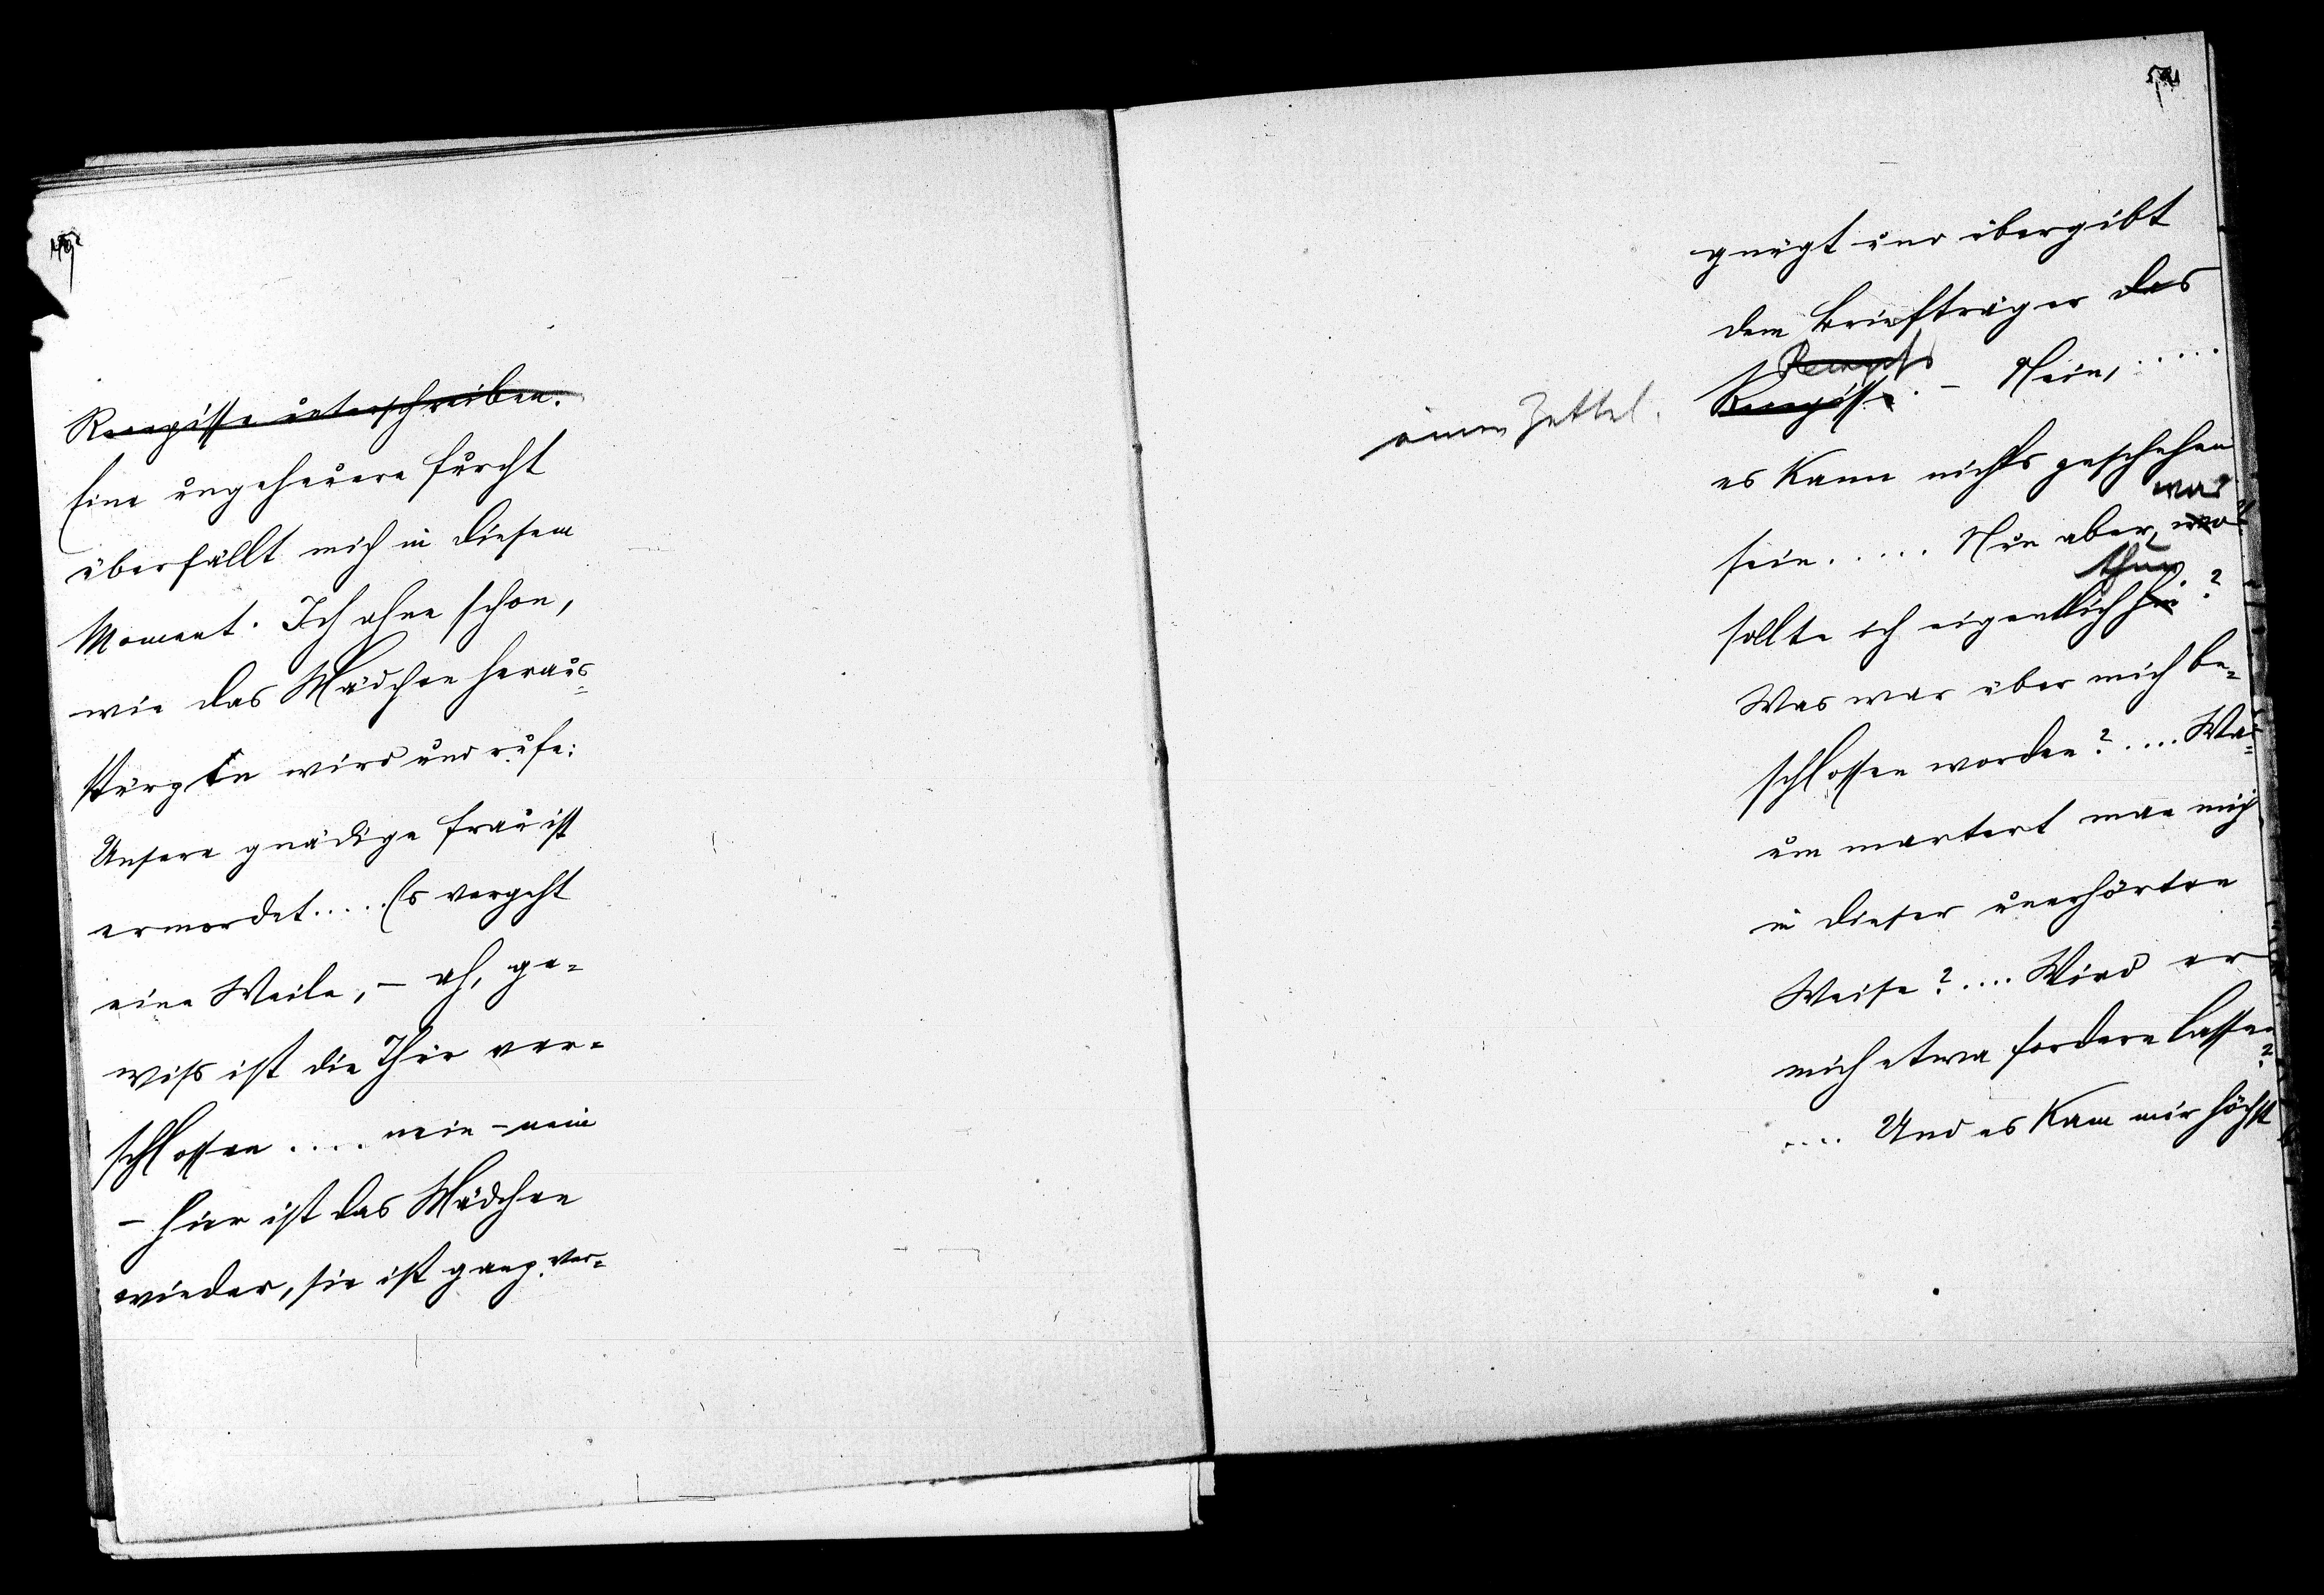 Recepisse unterschreiben.
Eine ungeheuere Furcht
überfällt mich in diesem
Moment. Ich ahne schon,
wie das Mädchen heraus=
stürzen wird und rufe:
Unsere gnädige Frau ist
ermordet..... Es vergeht
eine Weile, – ah, ge=
wiss ist die Thür ver=
schlossen .... nein – nein
– hier ist das Mädchen
wieder, sie ist ganz ver=
gnügt und übergibt
dem Briefträger das
Recepiss
einen Zettel. Recepisse. – Nein, .....
es kann nichts geschehen
was
sein. .... Nun aber, was
thun
sollte ich eigentlich hin?
Was war über mich be=
schlossen worden? .... War=
um martert man mich
in dieser unerhörten
Weise? .... Wird er
mich etwa fordern lassen?
.... Und es kam mir höchst